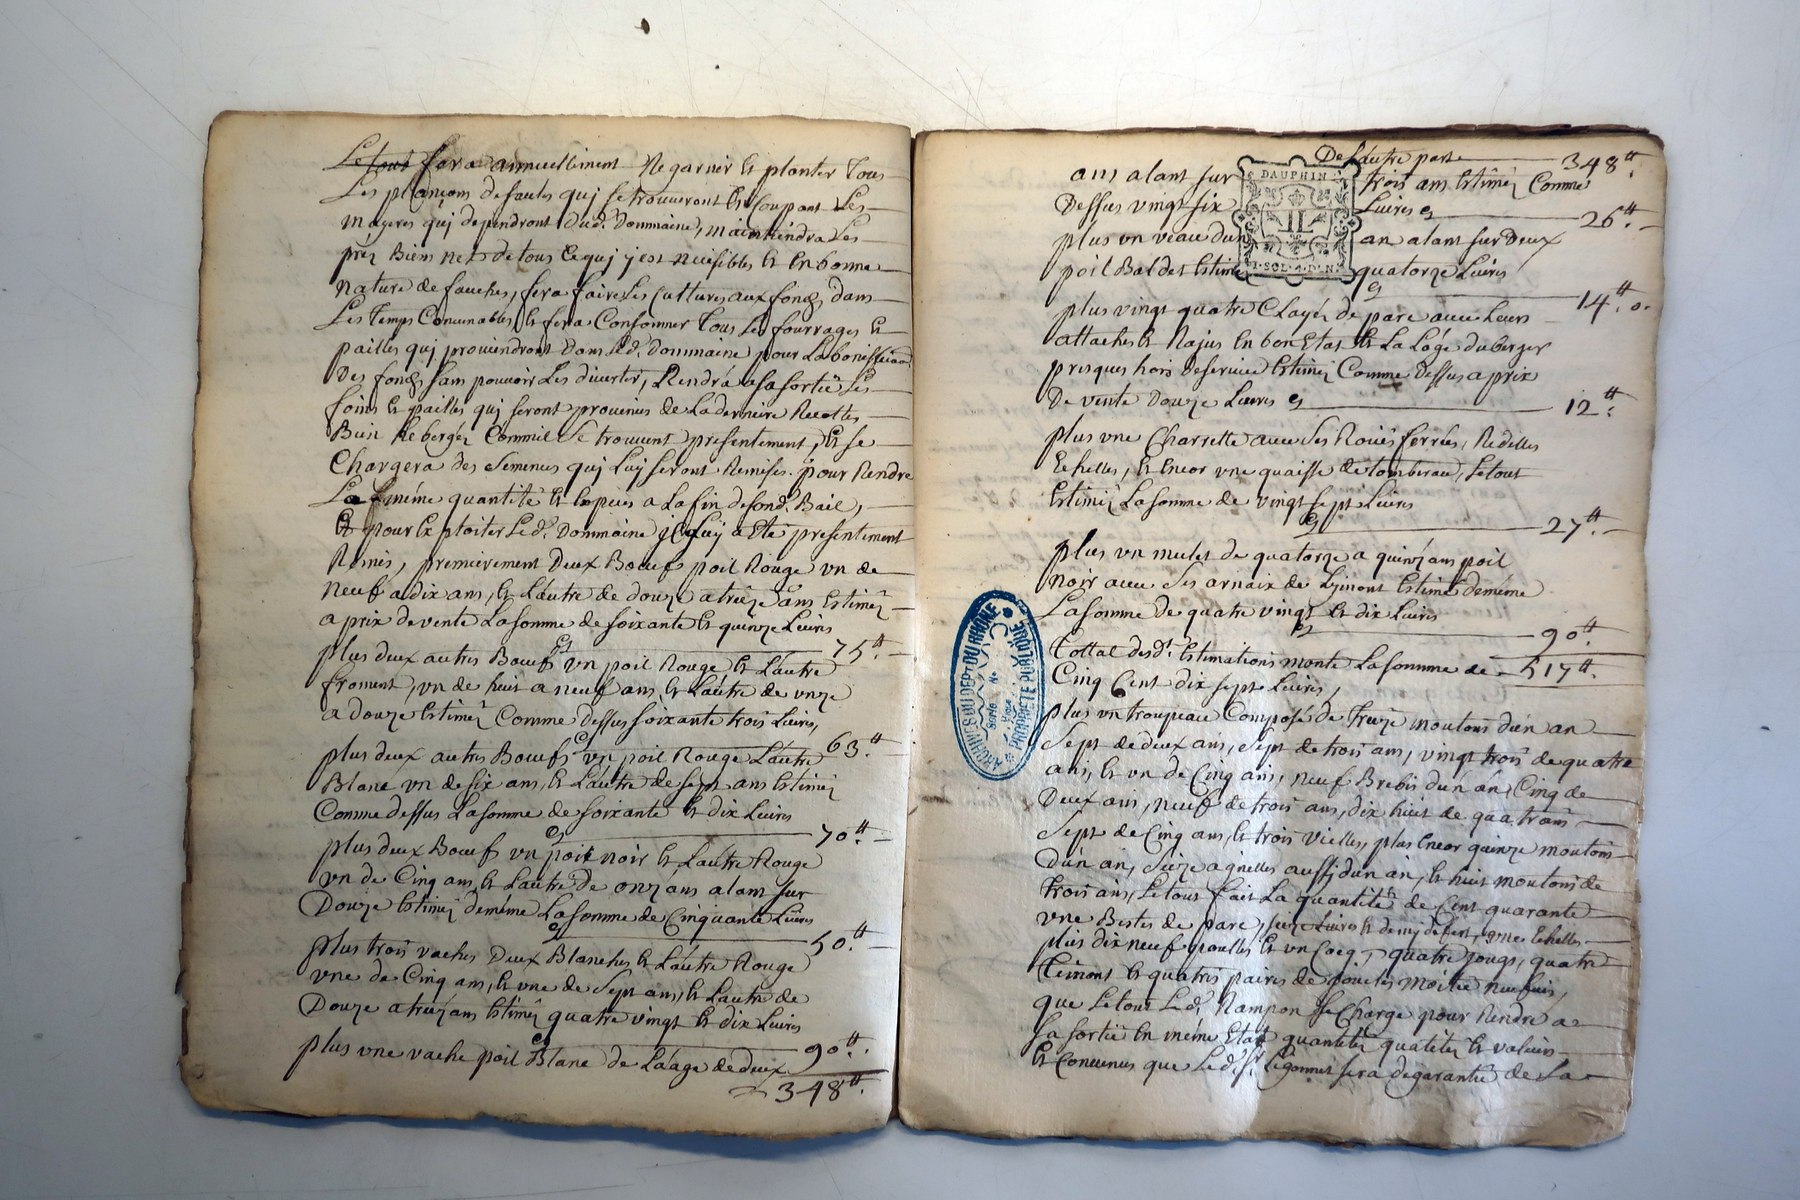 Le tout fera annuellement Regarnir et planter Tous
Les plançons de saules quj se trouueront En Coupant Les
mayeres quj dependront dud. Dommaine, maintiendra Les
prez Bien net de tous Ce quj y est nuisibles et En bonne
nature de fauches, fera faire Les Cultures aux fonds dans
Les Temps Conuenables, et fera Consommer Tous Les fourrages et
pailles quj prouiendront dans Led. Dommaine pour La
Des fonds sans pouuoir Les diuertir, Rendra a sa sortië Les
foins et pailles quj seront prouenus de La derniere Recoltes
Bien heberger Comme Se trouuent presentement, et se
Chargera des Semences quj Luy seront Remises pour Rendre
La méme quantité et Especes a La fin de sond. Bail,
Et pour Exploiter Led. Dommaine jl Luy a Eté presentement
Remis, premierement Deux Boeufs poil Rouge un de
neuf a dix ans, et L'autre de douze a treize ans Estimez
a prix de vente La somme de soixante et quinze Liures
Cy 75.tt
plus deux autres Boeufs un poil Rouge et L'autre
froment, un de huit a neuf ans, et L'autre de vnze
a douze Estimez Comme dessus soixante trois Liures,
Cy 63.tt
plus deux autres Boeufs un poil Rouge L'autre
Blanc un de six ans, et L'autre de sept ans Estimez
Comme dessus La somme de soixante et dix Liures
Cy 70.tt
plus deux Boeufs un poil noir et L'autre Rouge
un de Cinq ans et L'autre de onz ans alant sur
Douze Estimez deméme La somme de Cinquante Liures
Cy 50.tt
plus trois vaches Deux Blanches et L'autre Rouge
vne de Cinq ans, et vne de Sept ans, et L'autre de
Douze a treizans Estimez quatre vingt et dix Liures
Cy 90.tt
plus vne vache poil Blanc de L'aage de deux
348.tt
De L'autre part 348.tt
ans alant sur trois ans Estimez Comme
Dessus vingt six Liures Cy 26.tt
DAUPHINÉ
1. SOL. 4. DEN.
plus vn veau d'un an alant sur Deux
poil Baldet Estimé quatorze Liures
Cy 14.tt 0.
plus vingt quatre Clayes de parc auec Leurs
attaches et Rajus En bon Etat et La Loge du berger
presques hors de seruice Estimez Comme dessus a prix
De vente Douze Liures Cy 12.tt
plus vne Charrette auec Ses Roües ferrées, Ridelles
Echelles, et Encor vne quaisse de tombereau, Le tout
Estimez La somme de vingt sept Liures
Cy 27.tt
plus vn mulet de quatorze a quinz ans poil
noir auec Ses arnaix de Limont Estimé deméme
La somme de quatre vingt et dix Liures
Cy 90.tt
Tottal desd. Estimations monte La somme de 517tt.
Cinq Cent dix sept Liures,
plus vn troupeau Composé de Treize moutons d'un an
Sept de deux ans, Sept de trois ans, vingt trois de quatre
ans, et vn de Cinq ans, neuf Brebis d'un an, Cinq de
Deux ans, neuf de trois ans, dix huit de quatrans
Sept de Cinq ans, et trois vielles, plus Encor quinze moutons
D'un an, Seize agnelles aussj d'un an, et huit moutons de
trois ans, Le tout fait La quantité de Cent quarante
vne Bestes de parc,
plus dix neuf poulles et vn Cocq, quatre jougs, quatre
Timont et quatres paires de moitié neufuis,
que Le tout Led. Rampon Se Charge pour Rendre a
Sa sortië En méme Etat quantité qualitez et valeurs
Et Conuenus que Led. sr. Ligonnet sera degarantië de La
ARCHIVES DU DEPT DU RHÔNE
Série
PROPRIÉTÉ PUBLIQUE